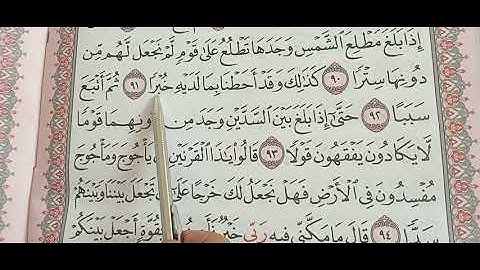 إِذَا بَلَغَ مَطْلِعَ الشَّمْسِ وَجَدَهَا تَطْلُعُ عَلَىٰ قَوْمٍ لَّمْ نَجْعَل لَّهُم مِّن
دُونِهَا سِتْرًا ٩٠ كَذَٰلِكَ وَقَدْ أَحَطْنَا بِمَا لَدَيْهِ خُبْرًا ٩١ ثُمَّ أَتْبَعَ
سَبَبًا ٩٢ حَتَّىٰ إِذَا بَلَغَ بَيْنَ السَّدَّيْنِ وَجَدَ مِن دُونِهِمَا قَوْمًا
لَّا يَكَادُونَ يَفْقَهُونَ قَوْلًا ٩٣ قَالُوا يَٰذَا الْقَرْنَيْنِ يَأْجُوجَ وَمَأْجُوجَ
مُفْسِدُونَ فِي الْأَرْضِ فَهَلْ نَجْعَلُ لَكَ خَرْجًا عَلَىٰ تَجْعَلَ بَيْنَنَا وَبَيْنَهُمْ
سَدًّا ٩٤ قَالَ مَا مَكَّنِّي فِيهِ رَبِّي خَيْرٌ بِقُوَّةٍ أَجْعَلْ بَيْنَكُمْ